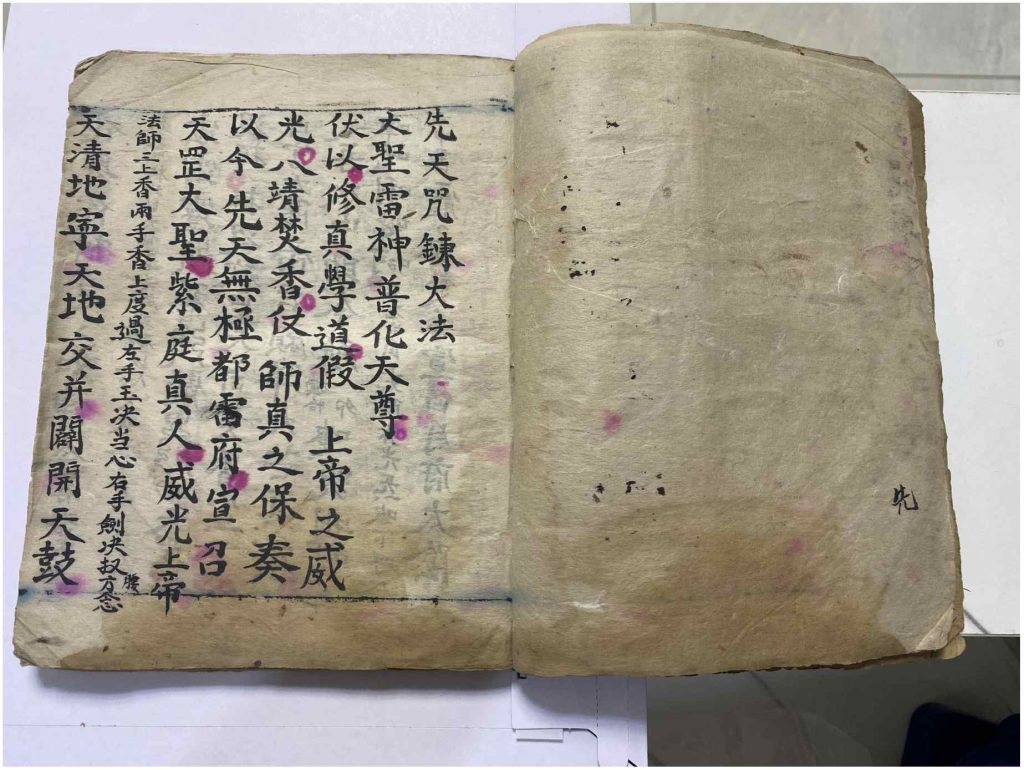 先
先天咒鍊大法
大聖雷神普化天尊
伏以修真學道假 上帝之威
光八靖焚香仗 師真之保奏
以今先天無極都雷府宣召
天罡大聖紫庭真人威光上帝
法師三上香兩手香上度過左手玉决当心右手劍决扠腰方念
天清地寕天地交并闢開天鼓